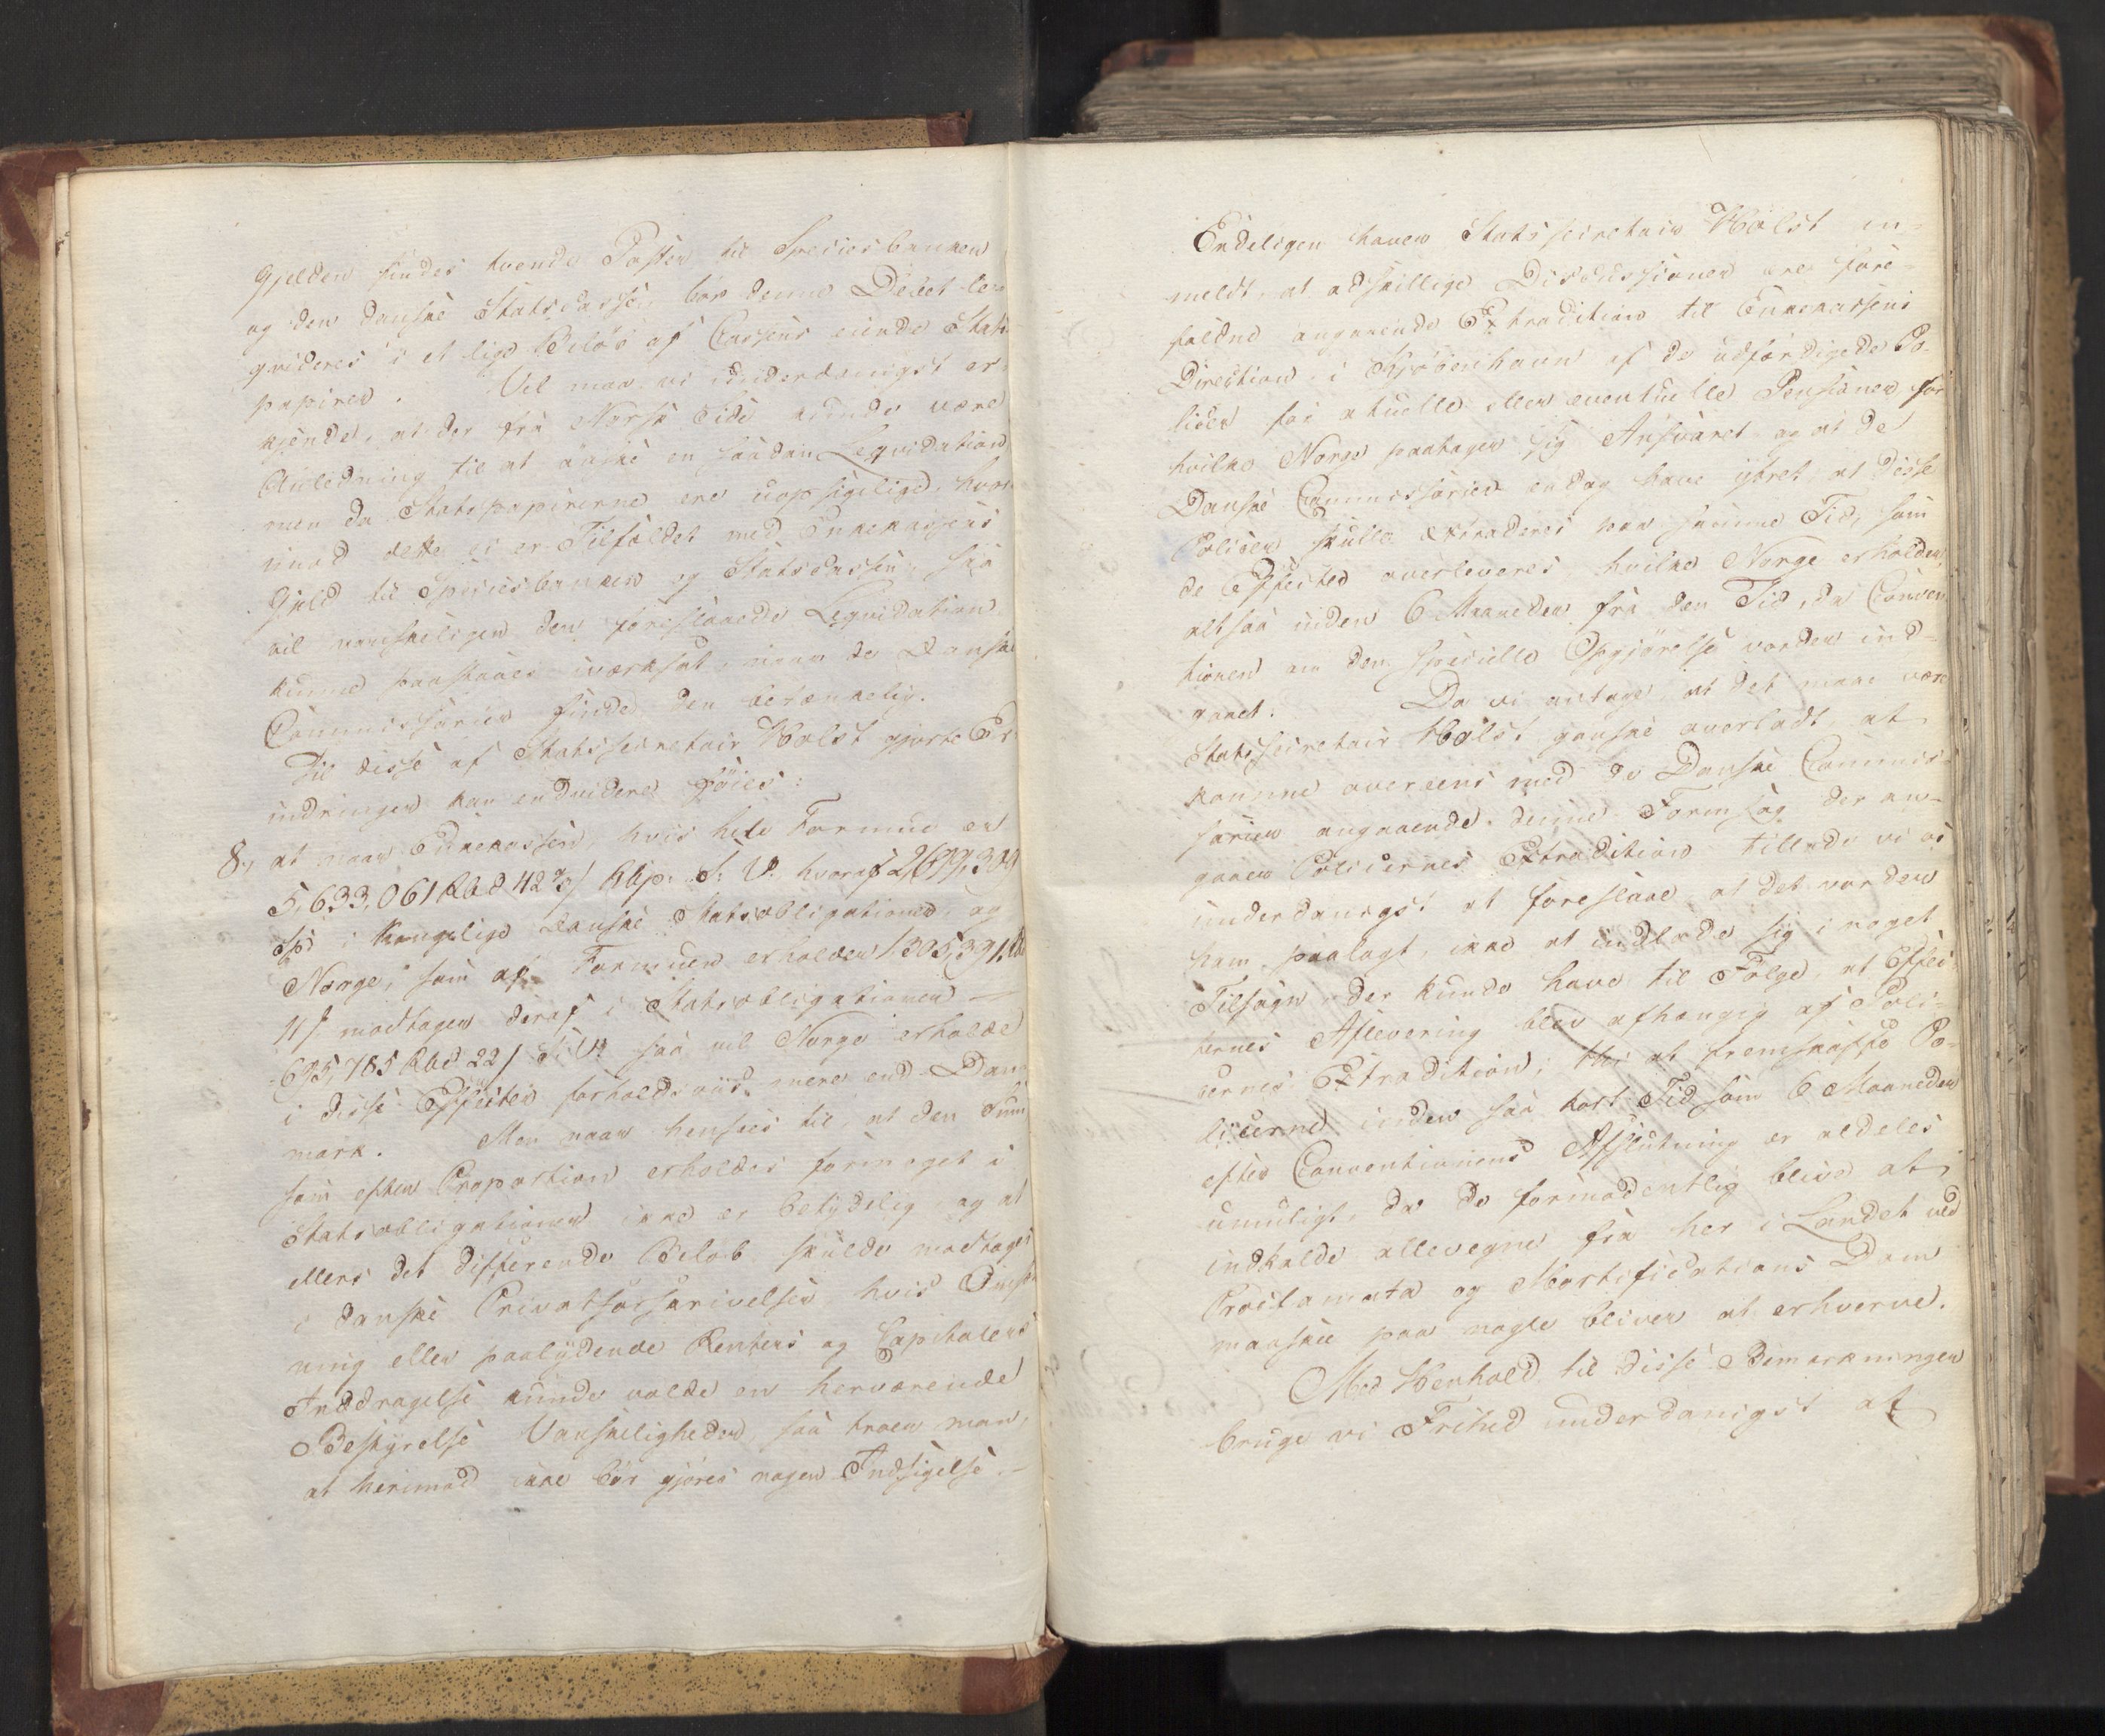 Gjelden findes tvende Poster til Speciesbanken
og den danske Statscasse, bør denne Debet le-
qvideres i et lige Beløb af Cassens eiende Stats
papirer. Vel maa vi underdanigst er-
kjende, at der fra Norsk Side kunde være
Anledning til at ønske en saadan Leqvidation
men da Statspapirerne ere uopsigelige, hvori
mod dette ei er Tilfældet med Enkekassens
Gjeld til Speciesbanken og Statscassen, saa
vil vanskeligen den foreslaaede Leqvidation
kunne paastaaes iværksat, naar de Danske
Commissarier finde den betænkelig.
Til disse af Statssecretair Holst gjorte Er-
indringer kan endvidere føies:
8., at naar Enkekassen, hvis hele Formue er
5,633,061 Rbd 42 2/3 / Rbp: S: V. hvoraf 2,699,304
Sp: i Kongelige danske Statsobligationer, og
Norge, som af Formuen erholder 1,305,391 Rb
11 /. modtager deraf i Statsobligationer —
695,785 Rbd 22 / S. V. saa vil Norge erholde
i disse Effecter forholdsviis mere end Dan-
mark. Men naar hensees til, at den Sum
som efter Proportion erholdes formeget i
Statsobligationer ikke er betydelig, og at
ellers det differende Beløb skulde modtages
i danske Privatforskrivelser, hvis Omsæt
ning eller paalydende Renters og Capitalers
Inddragelse kunde volde en herværende
Bestyrelse Vanskeligheder, saa troer man,
at herimod ikke bør gjøres nogen Indsigelse. —
Endeligen haver Statssecretair Holst an-
meldt, at adskillige Discussioner ere fore-
faldne angaaende Extradition til Enkekassens
Direction i Kjøbenhavn af de udfærdigede Po-
licer for actuelle eller eventuelle Pensioner for
hvilke Norge paatager sig Ansvaret og at de
Danske Commissarier endog have ytret, at disse
Policer skulle extraderes paa samme Tid, som
de Effecter overleveres hvilke Norge erholder,
altsaa inden 6 Maaneder fra den Tid, da Conven
tionen om den specielle Opgjørelse vorder ind-
gaaet. Da vi antage, at det maae være
Statssecretair Holst ganske overladt, at
komme overeens med de Danske Commis-
sarier angaaende denne Formsag der an-
gaaer Policernes Extradition tillade vi os
underdanigst at foreslaae, at det vorder
ham paalagt, ikke at indlade sig i noget
Tilsagn der kunde have til Følge, at Effec-
ternes Aflevering blev afhængig af Poli-
cernes Extradition; thi at fremskaffe Po-
licerne inden saa kort Tid som 6 Maaneder
efter Conventionens Afslutning er aldeles
umuligt, da de formodentlig blive at
indkalde allevegne fra her i Landet ved
Proclamata og Mortifications Dom
maaskee paa nogle bliver at erhverve.
Med Henhold til disse Bemærkninger
bruge vi Frihed underdanigst at